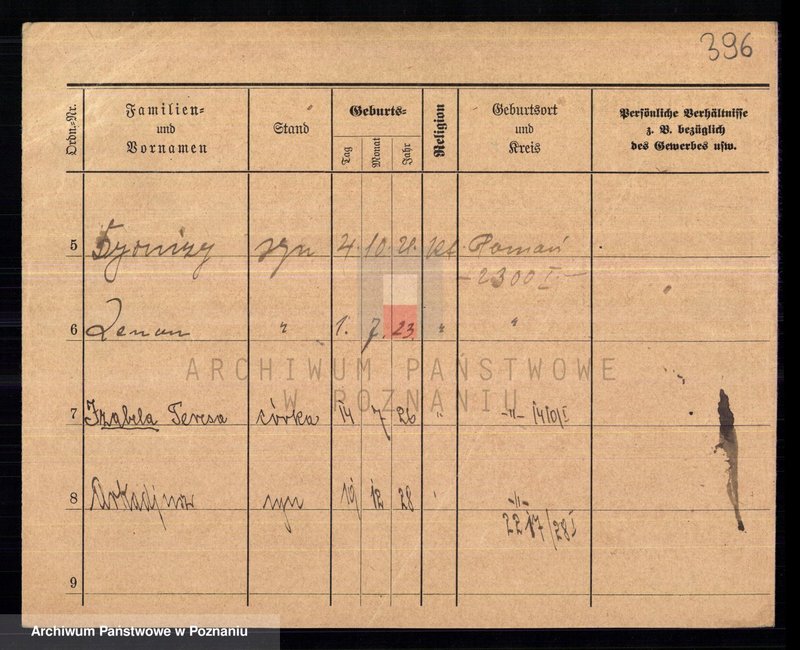 396
Ordn.-Nr.
Familien-
und
Vornamen
Stand
Geburts-
Tag
Monat
Jahr
Religion
Geburtsort
und
Kreis
Persönliche Verhältnisse
z. B. bezüglich
des Gewerbes usw.
5 Dyonizy syn 4. 10. 21. kt. Poznań
– 2300 I –
6 Zenon " 1. 7. 23. " "
ARCHIWUM PAŃSTWOWE
W POZNANIU
7 Izabela Teresa córka 14 7 26 " -"- 1410/I
8 Arkadjusz syn 19 12 28 ' -"-
2217/28 I
9
Archiwum Państwowe w Poznaniu